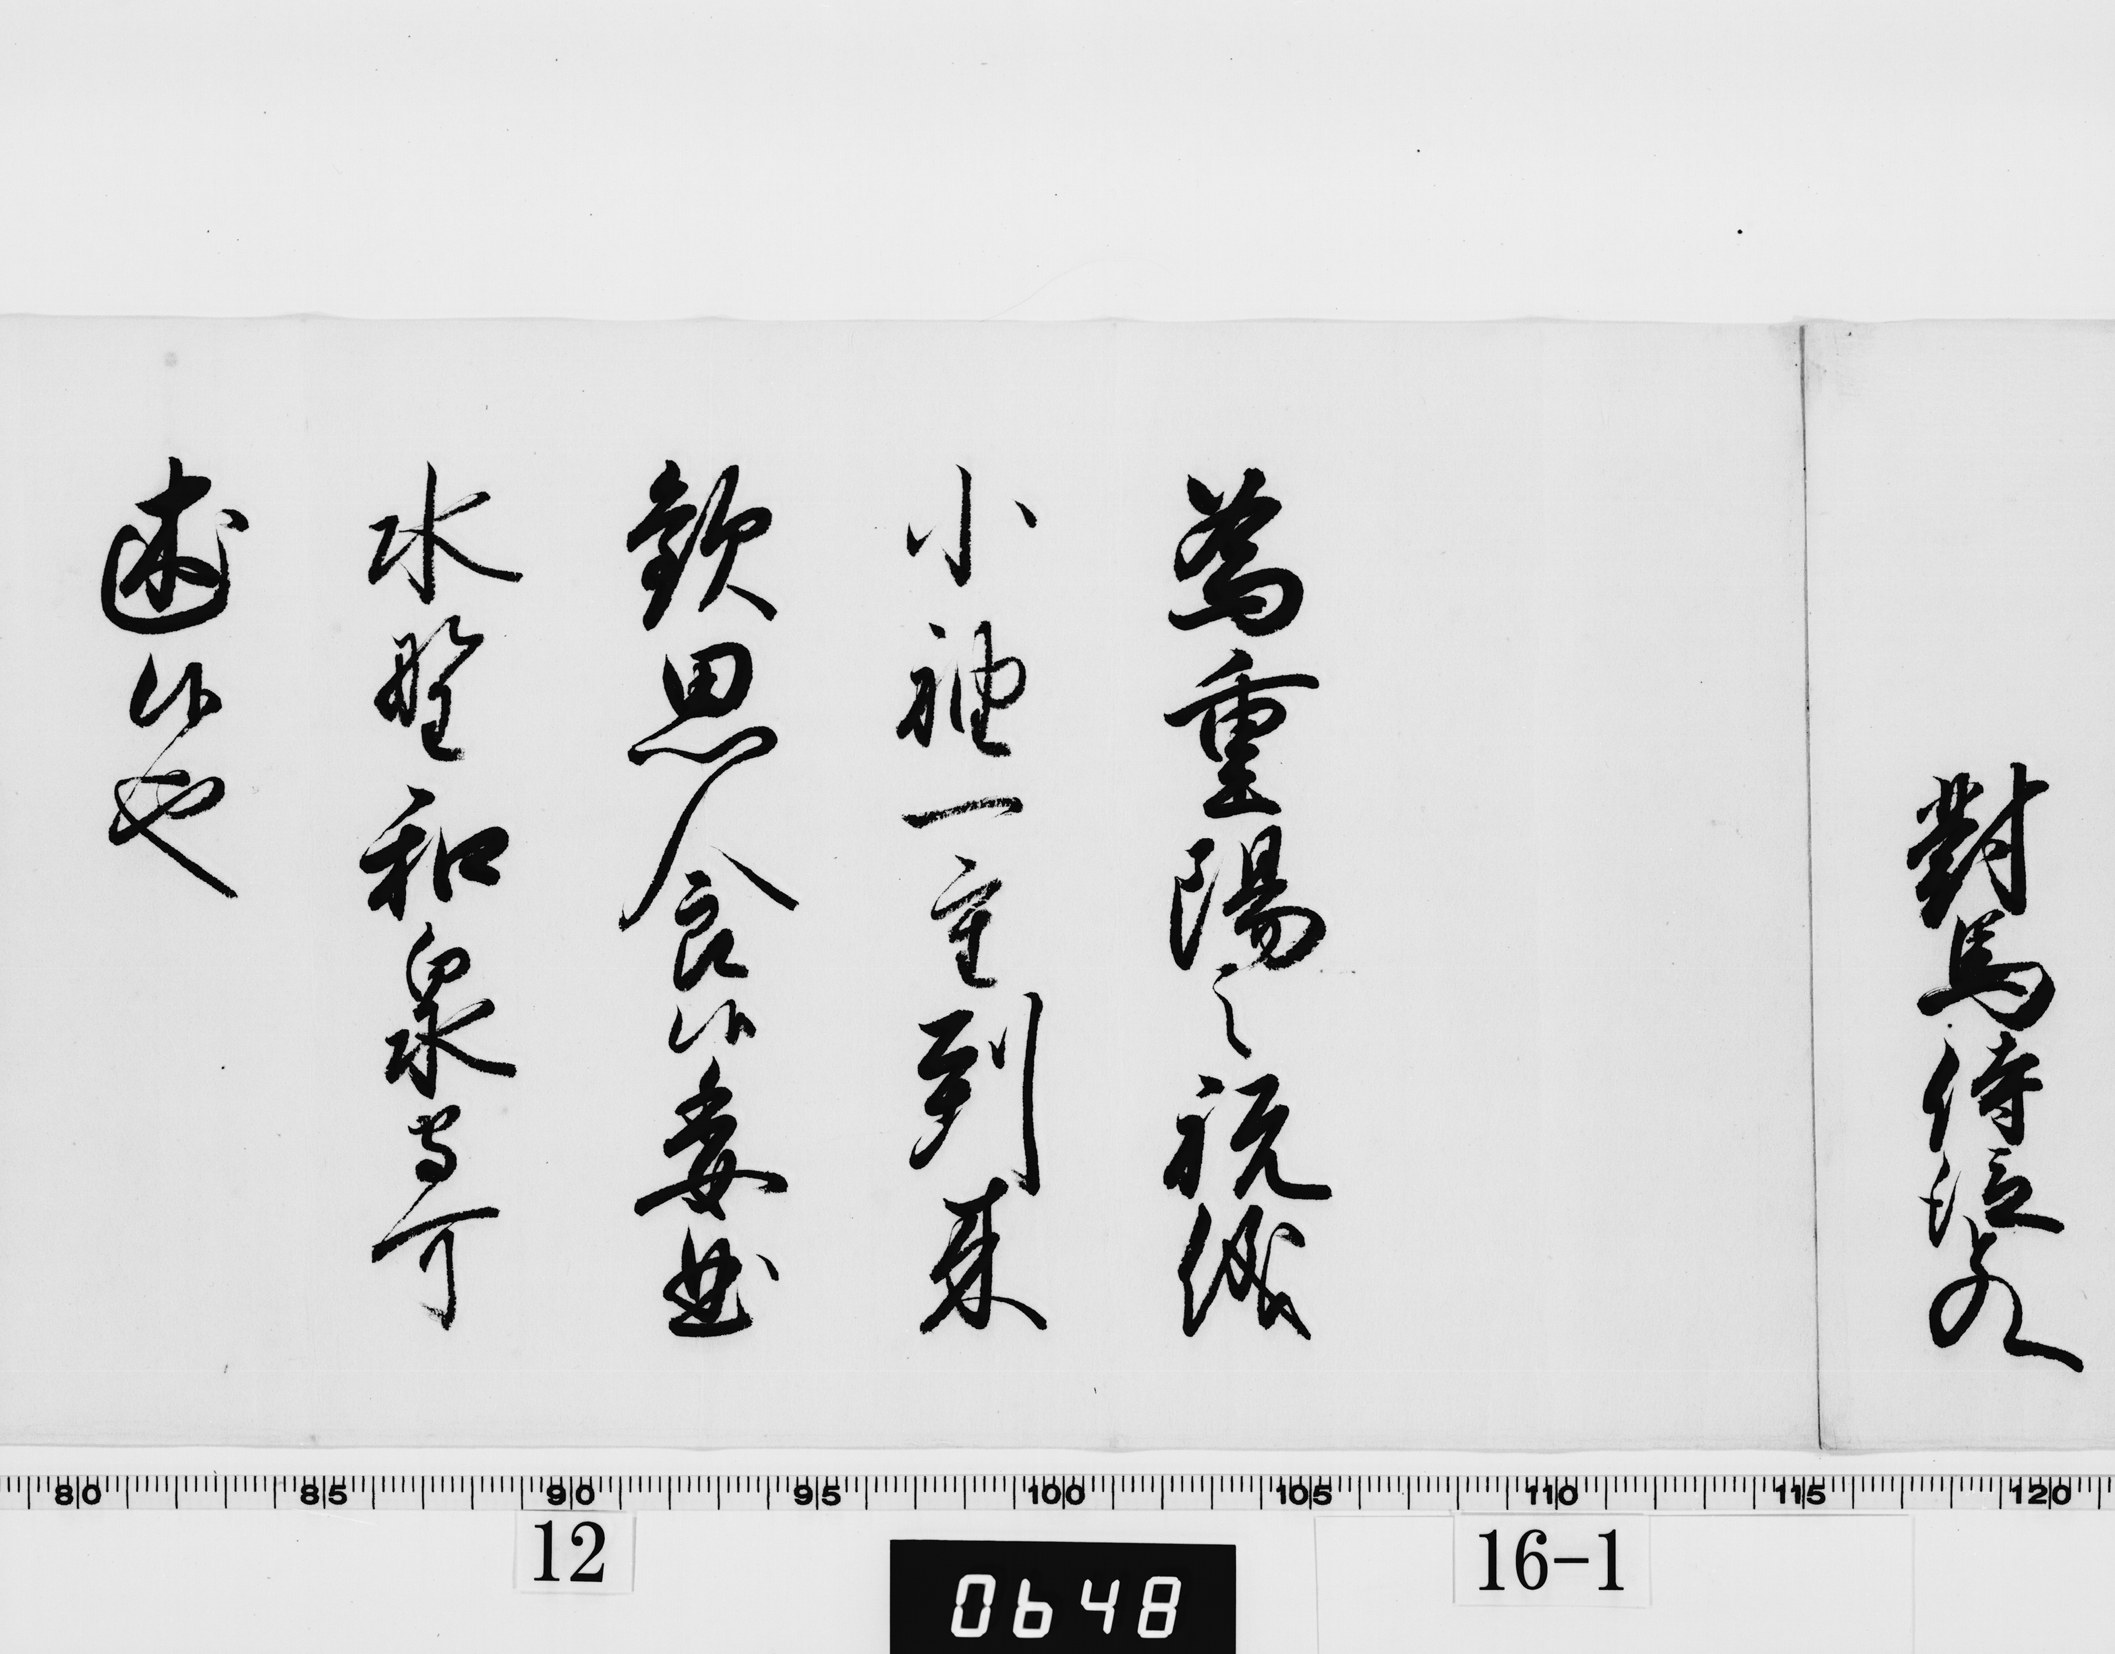 對馬侍従殿
為重陽之祝儀
小袖一重到来
歓思食候委曲
水野和泉守可
述候也
80 85 90 95 100 105 110 115 120
12
16-1
0648